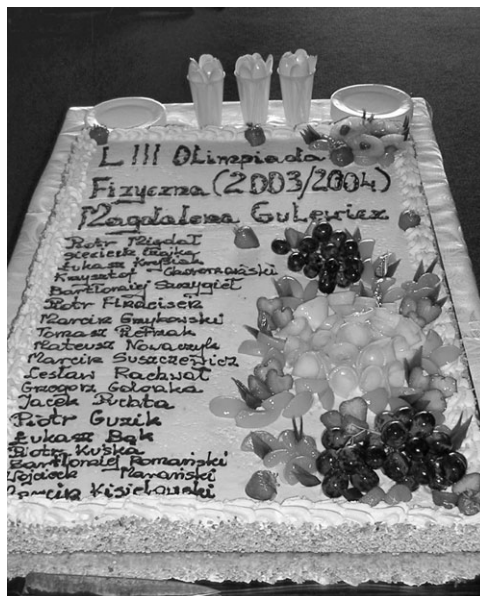 LIII Olimpiada
Fizyczna (2003/2004)
Magdalena Gulewicz
Piotr Migdał
Łukasz
Krzysztof
Bartłomiej Szczygieł
Piotr
Marcin Grzykowski
Tomasz Pietrzak
Mateusz Nowaczyk
Marcin Suszczewicz
Lesław Rachwał
Grzegorz
Jacek Puchta
Piotr Guzik
Łukasz Bąk
Piotr Kuśka
Bartłomiej Romański
Wojciech Marański
Marcin Kisielowski